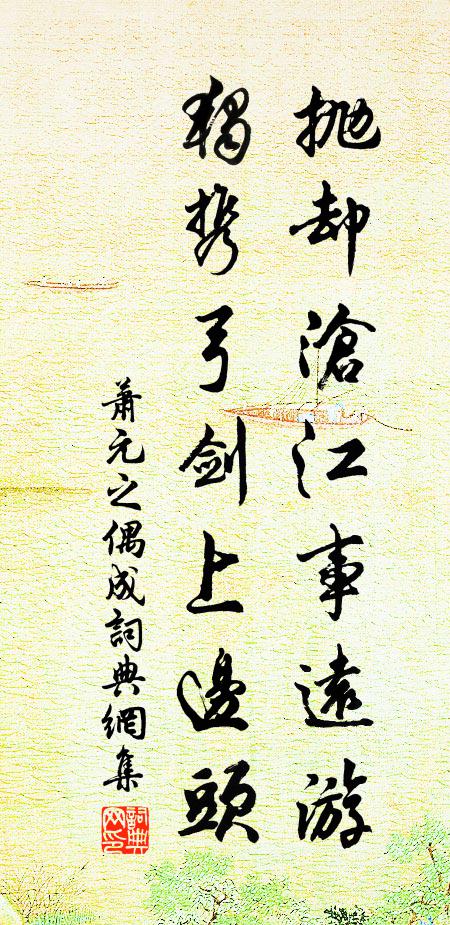 抛却滄江事遠游
獨携弓劍上邊頭
蕭元之偶成詞典網集
詞典网印